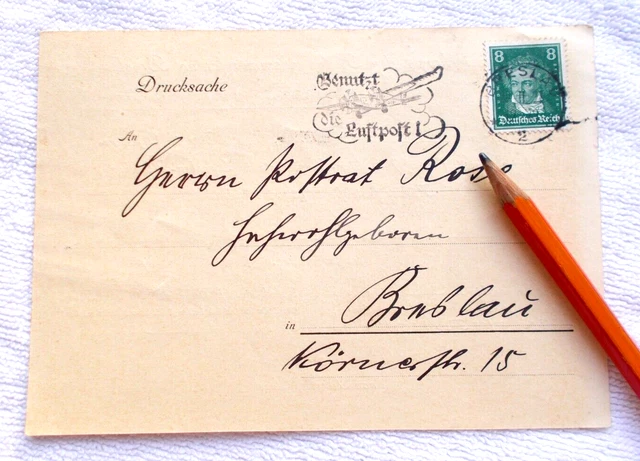 Drucksache
Benutzt
die
Luftpost!
8 8
BRESLAU
Deutsches Reich
2
An
Herrn Postrat
Hochwohlgeboren
in Breslau
Körnerstr. 15